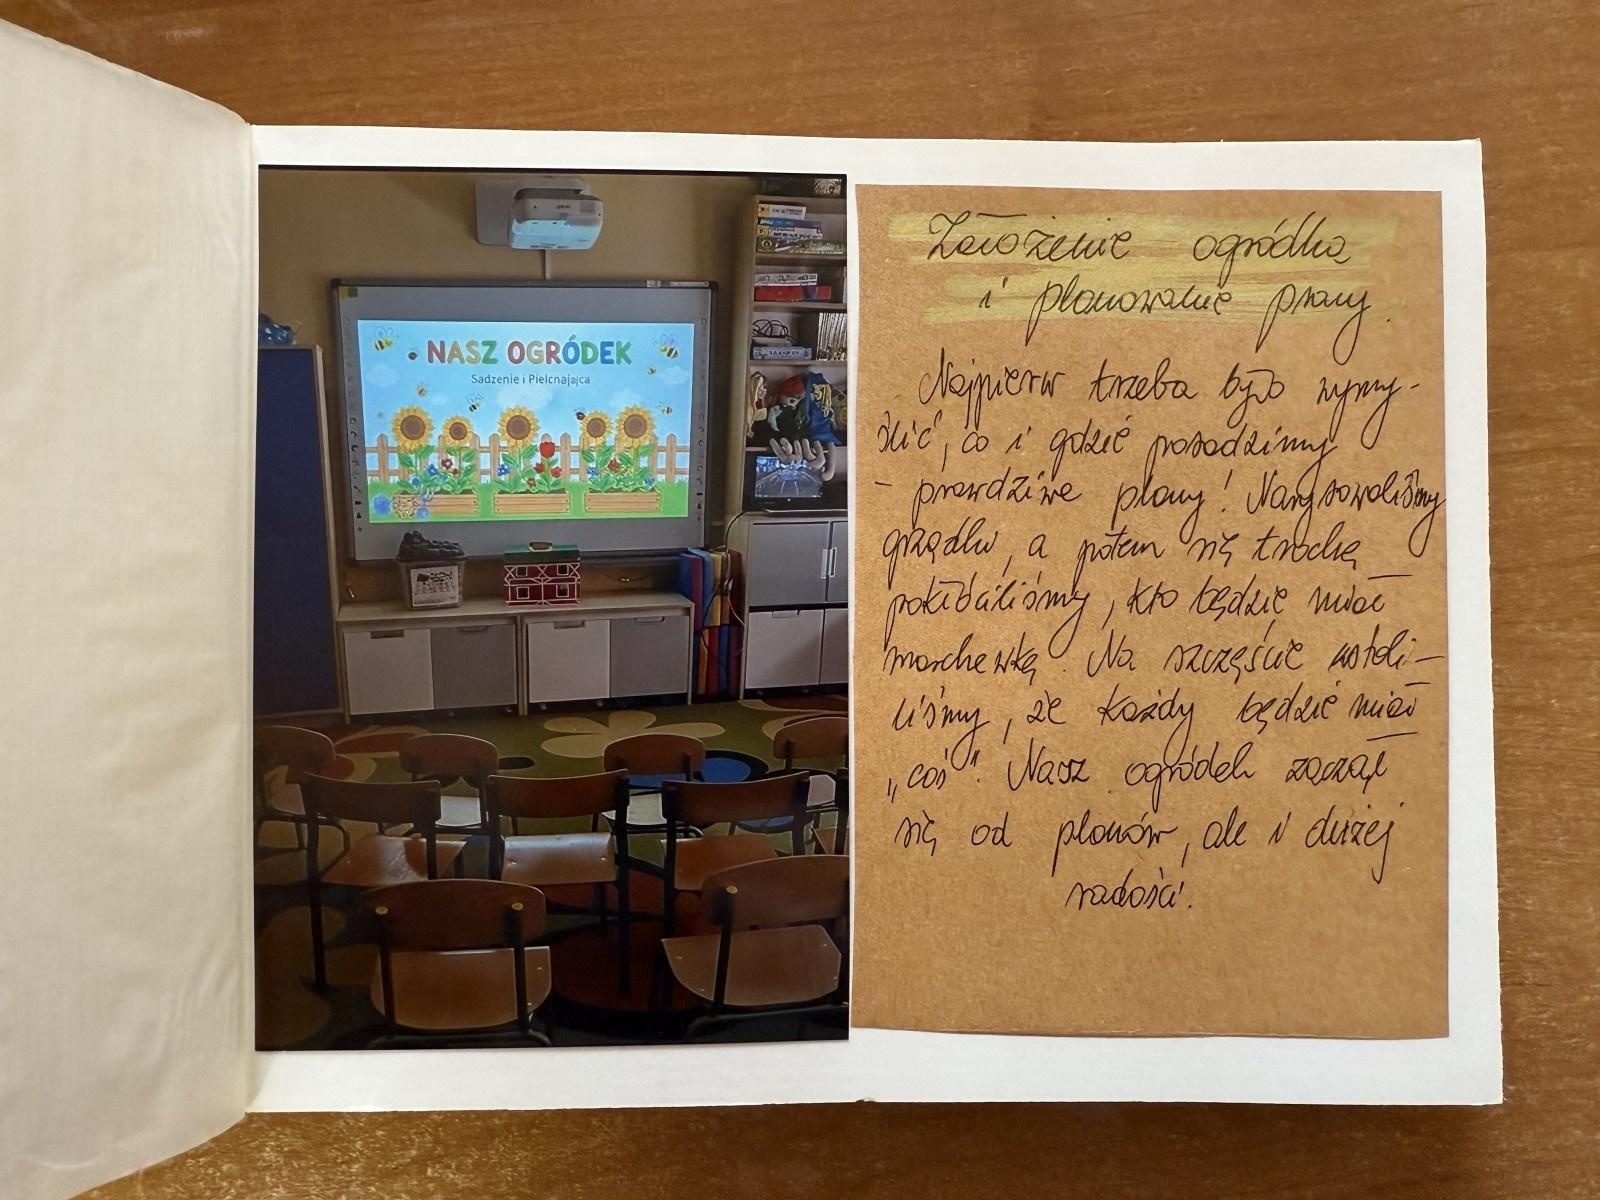 NASZ OGRÓDEK
Sadzenie i Pielcnająca
Założenie ogródka
i planowanie pracy.
Najpierw trzeba było wymy-
ślić, co i gdzie posadzimy
- prawdziwe plany! Narysowaliśmy
grządki, a potem się trochę
pokłóciliśmy, kto będzie miał
marchewkę. Na szczęście ustali-
liśmy, że każdy będzie miał
„coś". Nasz ogródek zaczął
się od planów, ale i dużej
radości!